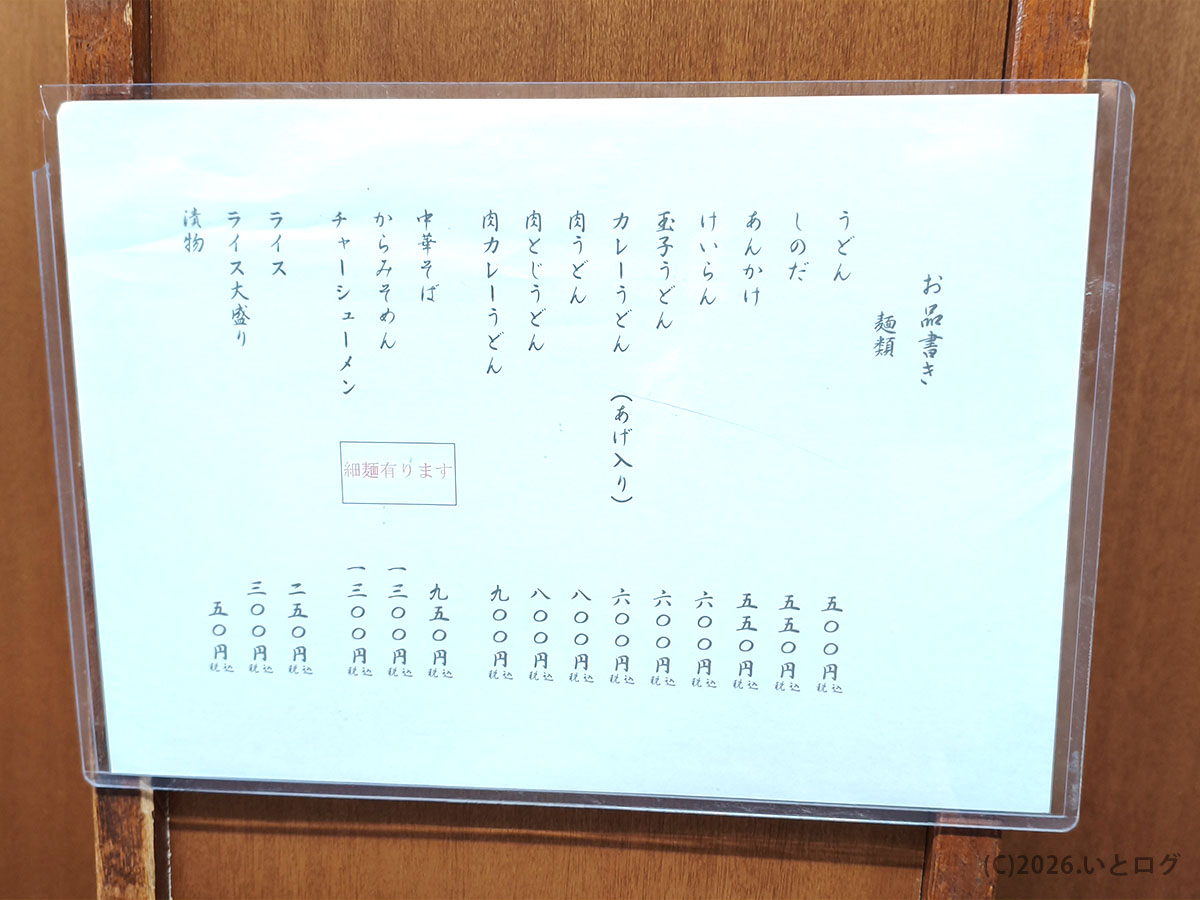 お品書き
麺類
うどん 五〇〇円税込
しのだ 五五〇円税込
あんかけ 五五〇円税込
けいらん 六〇〇円税込
玉子うどん 六〇〇円税込
カレーうどん (あげ入り) 六〇〇円税込
肉うどん 八〇〇円税込
肉とじうどん 八〇〇円税込
肉カレーうどん 九〇〇円税込
中華そば 九五〇円税込
からみそめん 一三〇〇円税込
チャーシューメン 一三〇〇円税込
細麺有ります
ライス 二五〇円税込
ライス大盛り 三〇〇円税込
漬物 五〇円税込
(C)2026.いとログ